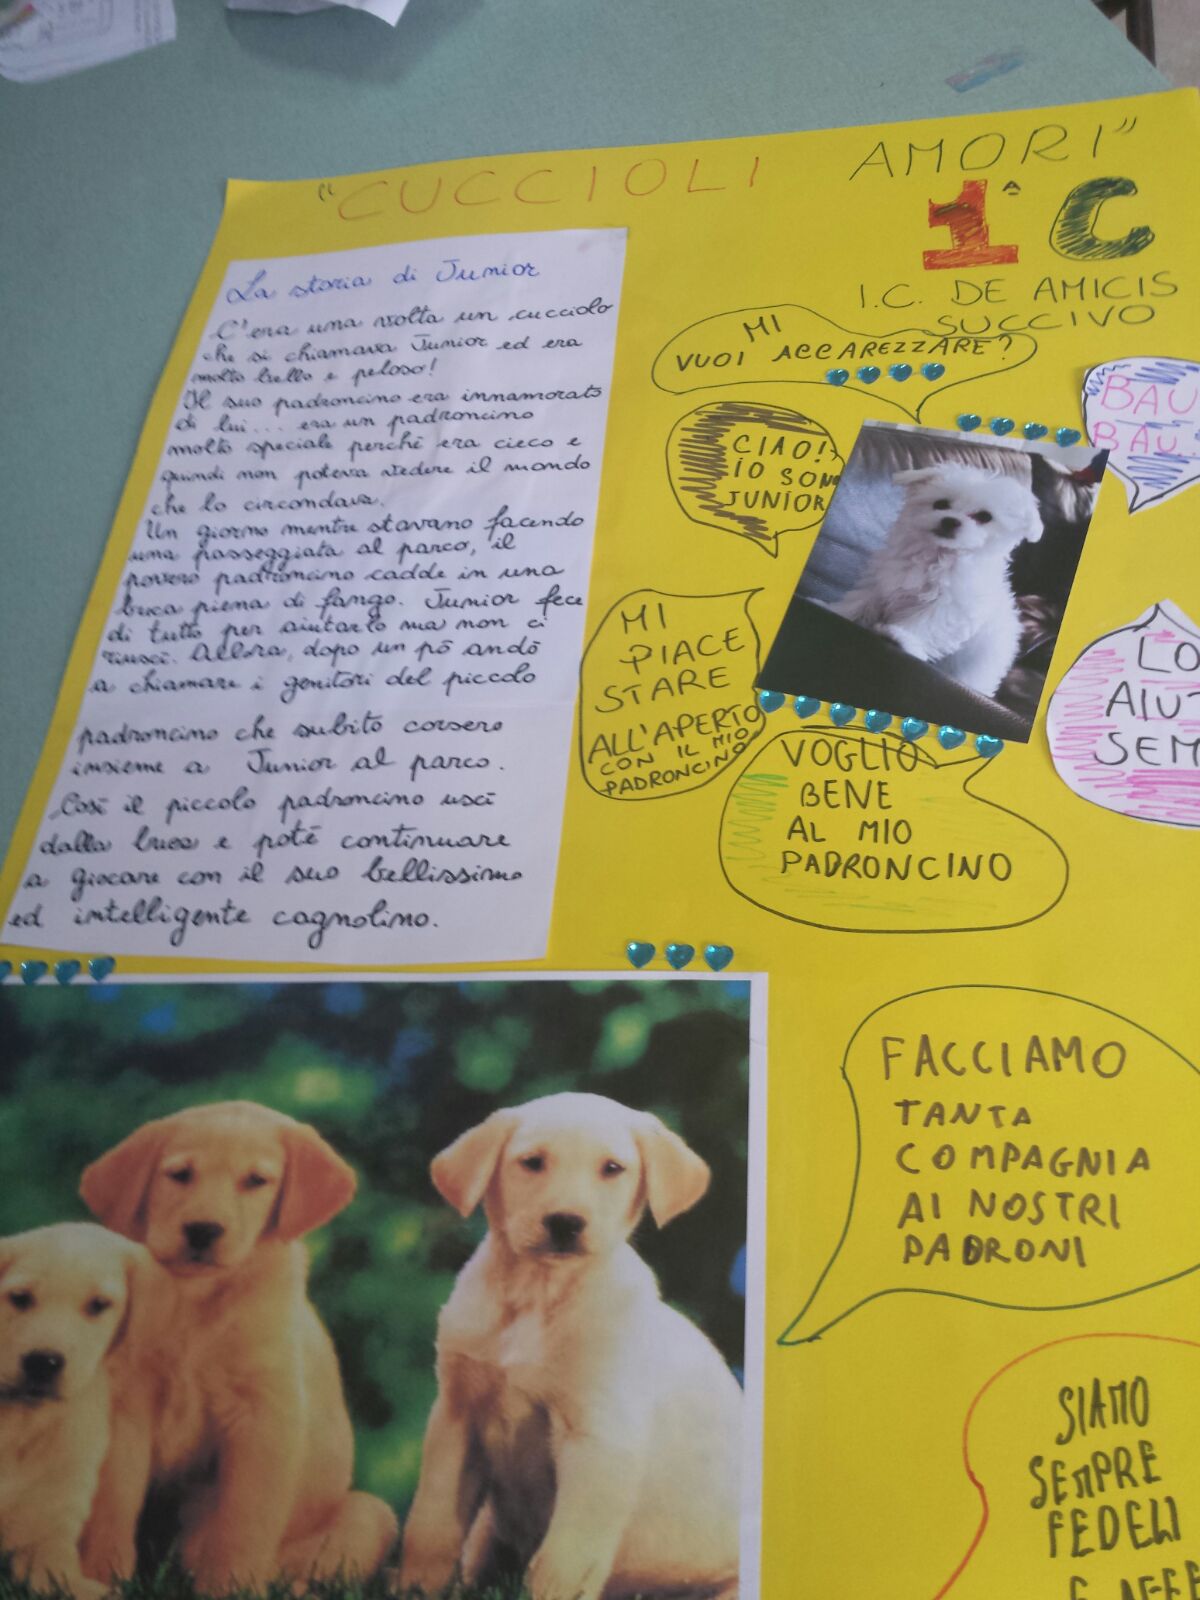 "CUCCIOLI AMORI"
1ª C
I.C. DE AMICIS
SUCCIVO
La storia di Junior
C'era una volta un cucciolo
che si chiamava Junior ed era
molto bello e peloso!
Il suo padroncino era innamorato
di lui... era un padroncino
molto speciale perchē era cieco e
quindi non poteva vedere il mondo
che lo circondava.
Un giorno mentre stavano facendo
una passeggiata al parco, il
povero padroncino cadde in una
buca piena di fango. Junior fece
di tutto per aiutarlo ma non ci
riuscī. Allora, dopo un pō andō
a chiamare i genitori del piccolo
padroncino che subito corsero
insieme a Junior al parco.
Cosī il piccolo padroncino uscī
dalla buca e potē continuare
a giocare con il suo bellissimo
ed intelligente cagnolino.
MI
VUOI ACCAREZZARE?
CIAO!
IO SONO
JUNIOR
BAU
BAU!
MI
PIACE
STARE
ALL'APERTO
CON IL MIO
PADRONCINO
VOGLIO
BENE
AL MIO
PADRONCINO
LO
AIUT
SEM
FACCIAMO
TANTA
COMPAGNIA
AI NOSTRI
PADRONI
SIAMO
SEMPRE
FEDELI
E AFFE